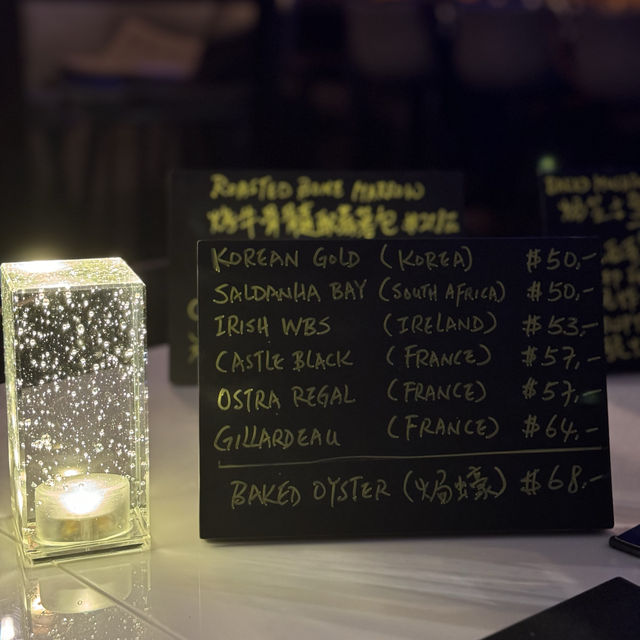 ROASTED BONE MARROW
KOREAN GOLD (KOREA) $50.-
SALDANHA BAY (SOUTH AFRICA) $50.-
IRISH WBS (IRELAND) $53.-
CASTLE BLACK (FRANCE) $57.-
OSTRA REGAL (FRANCE) $57.-
GILLARDEAU (FRANCE) $64.-
BAKED OYSTER (焗蠔) $68.-